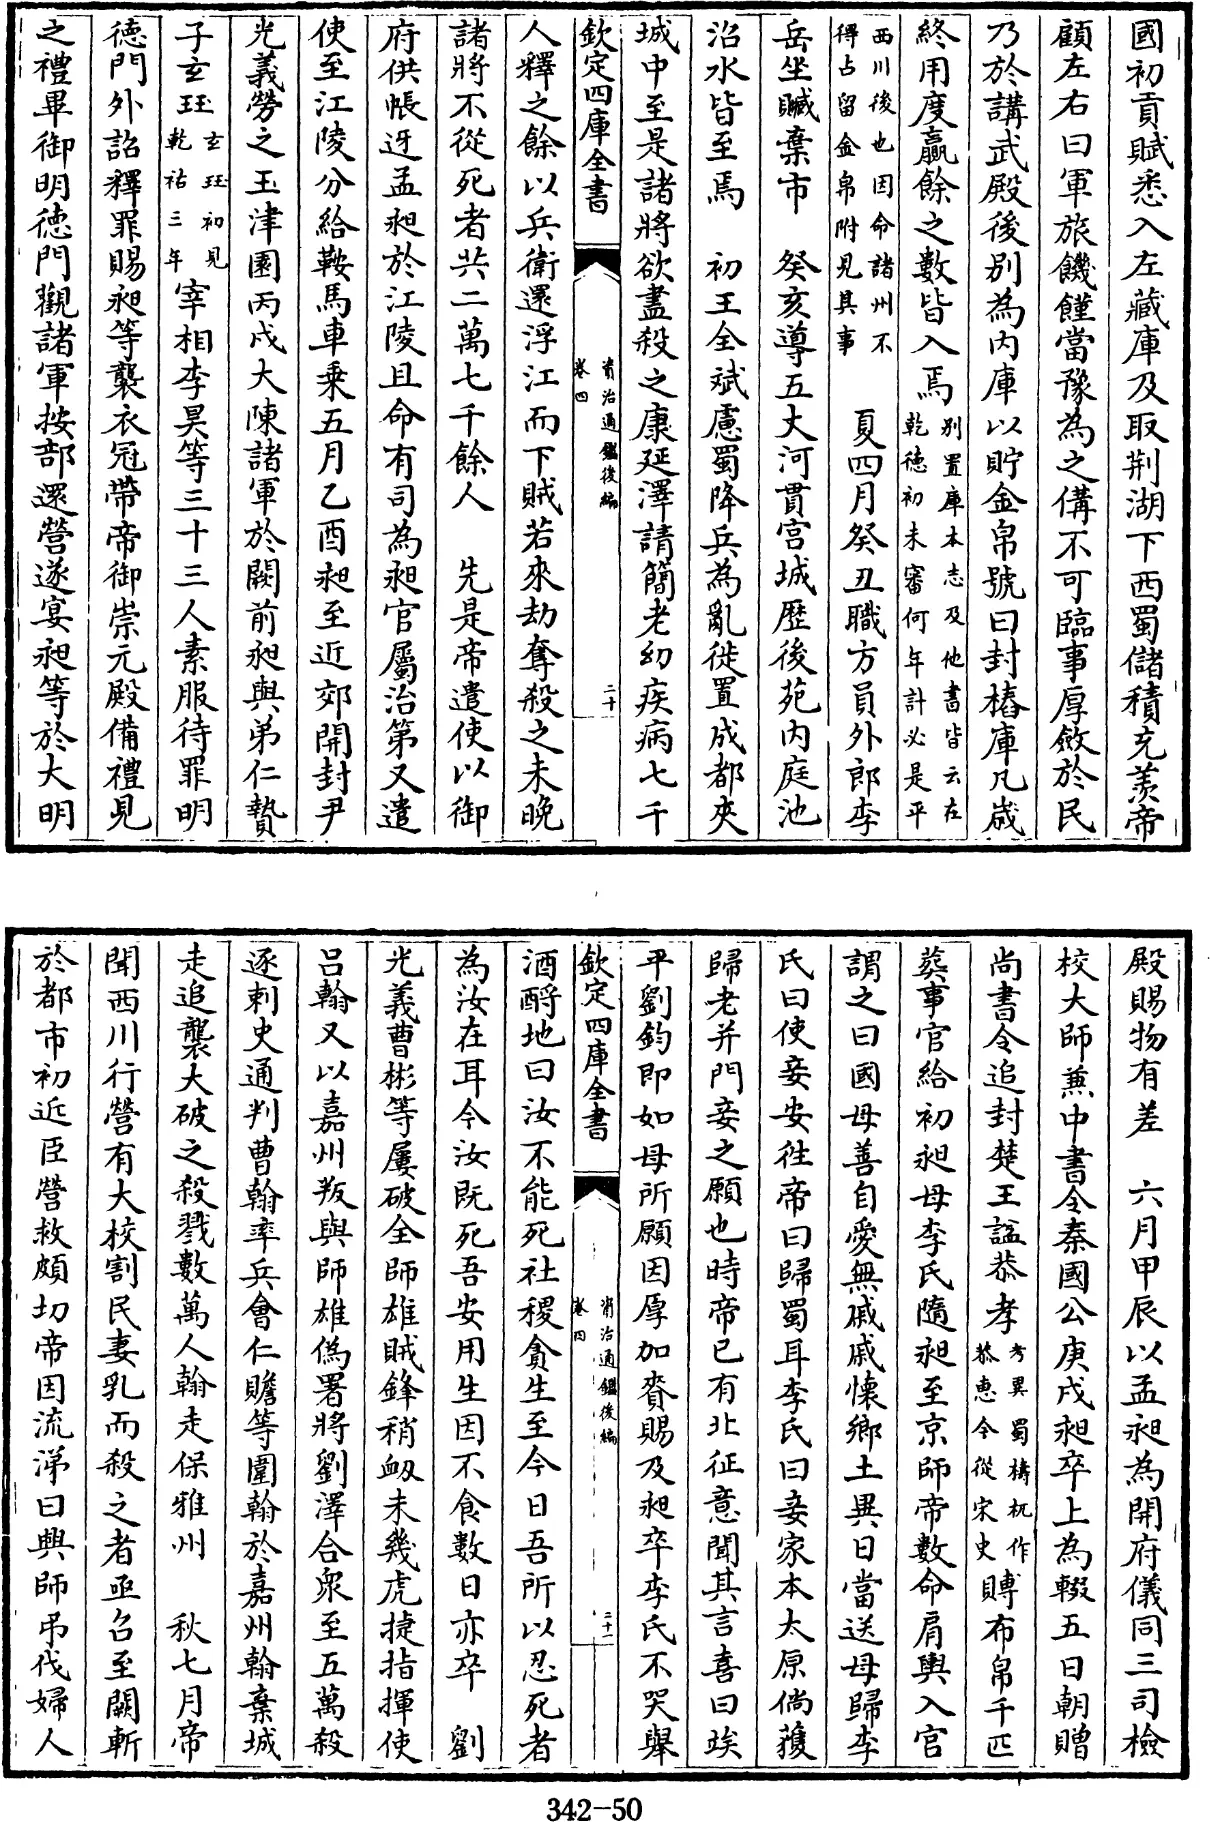 國初貢賦悉入左藏庫及取荆湖下西蜀儲積充羨帝
顧左右曰軍旅饑饉當豫為之備不可臨事厚斂於民
乃於講武殿後别為内庫以貯金帛號曰封樁庫凡歲
終用度贏餘之數皆入焉别置庫本志及他書皆云在乾德初未審何年計必是平
西川後也因命諸州不得占留金帛附見其事　夏四月癸丑職方員外郎李
岳坐贓棄市　癸亥導五丈河貫宫城歷後苑内庭池
沼水皆至焉　初王全斌慮蜀降兵為亂徙置成都夾
城中至是諸將欲盡殺之康延澤請簡老幼疾病七千
欽定四庫全書　資治通鑑後編卷四　二十
人釋之餘以兵衛還浮江而下賊若來劫奪殺之未晚
諸將不從死者共二萬七千餘人　先是帝遣使以御
府供帳迓孟昶於江陵且命有司為昶官屬治第又遣
使至江陵分給鞍馬車乘五月乙酉昶至近郊開封尹
光義勞之玉津園丙戌大陳諸軍於闕前昶與弟仁贄
子玄珏玄珏初見乾祐三年宰相李昊等三十三人素服待罪明
德門外詔釋罪賜昶等襲衣冠帶帝御崇元殿備禮見
之禮畢御明德門觀諸軍按部還營遂宴昶等於大明
殿賜物有差　六月甲辰以孟昶為開府儀同三司檢
校大師兼中書令秦國公庚戌昶卒上為輟五日朝贈
尚書令追封楚王諡恭孝考異蜀檮杌作恭惠今從宋史賻布帛千匹
葬事官給初昶母李氏隨昶至京師帝數命肩輿入宫
謂之曰國母善自愛無戚戚懷鄉土異日當送母歸李
氏曰使妾安往帝曰歸蜀耳李氏曰妾家本太原倘獲
歸老并門妾之願也時帝已有北征意聞其言喜曰竢
平劉鈞即如母所願因厚加賚賜及昶卒李氏不哭舉
欽定四庫全書　資治通鑑後編卷四　二十一
酒酹地曰汝不能死社稷貪生至今日吾所以忍死者
為汝在耳今汝既死吾安用生因不食數日亦卒　劉
光義曹彬等屢破全師雄賊鋒稍衂未幾虎捷指揮使
吕翰又以嘉州叛與師雄偽署將劉澤合衆至五萬殺
逐刺史通判曹翰率兵會仁贍等圍翰於嘉州翰棄城
走追襲大破之殺戮數萬人翰走保雅州　秋七月帝
聞西川行營有大校割民妻乳而殺之者亟召至闕斬
於都市初近臣營救頗切帝因流涕曰興師弔伐婦人
342-50